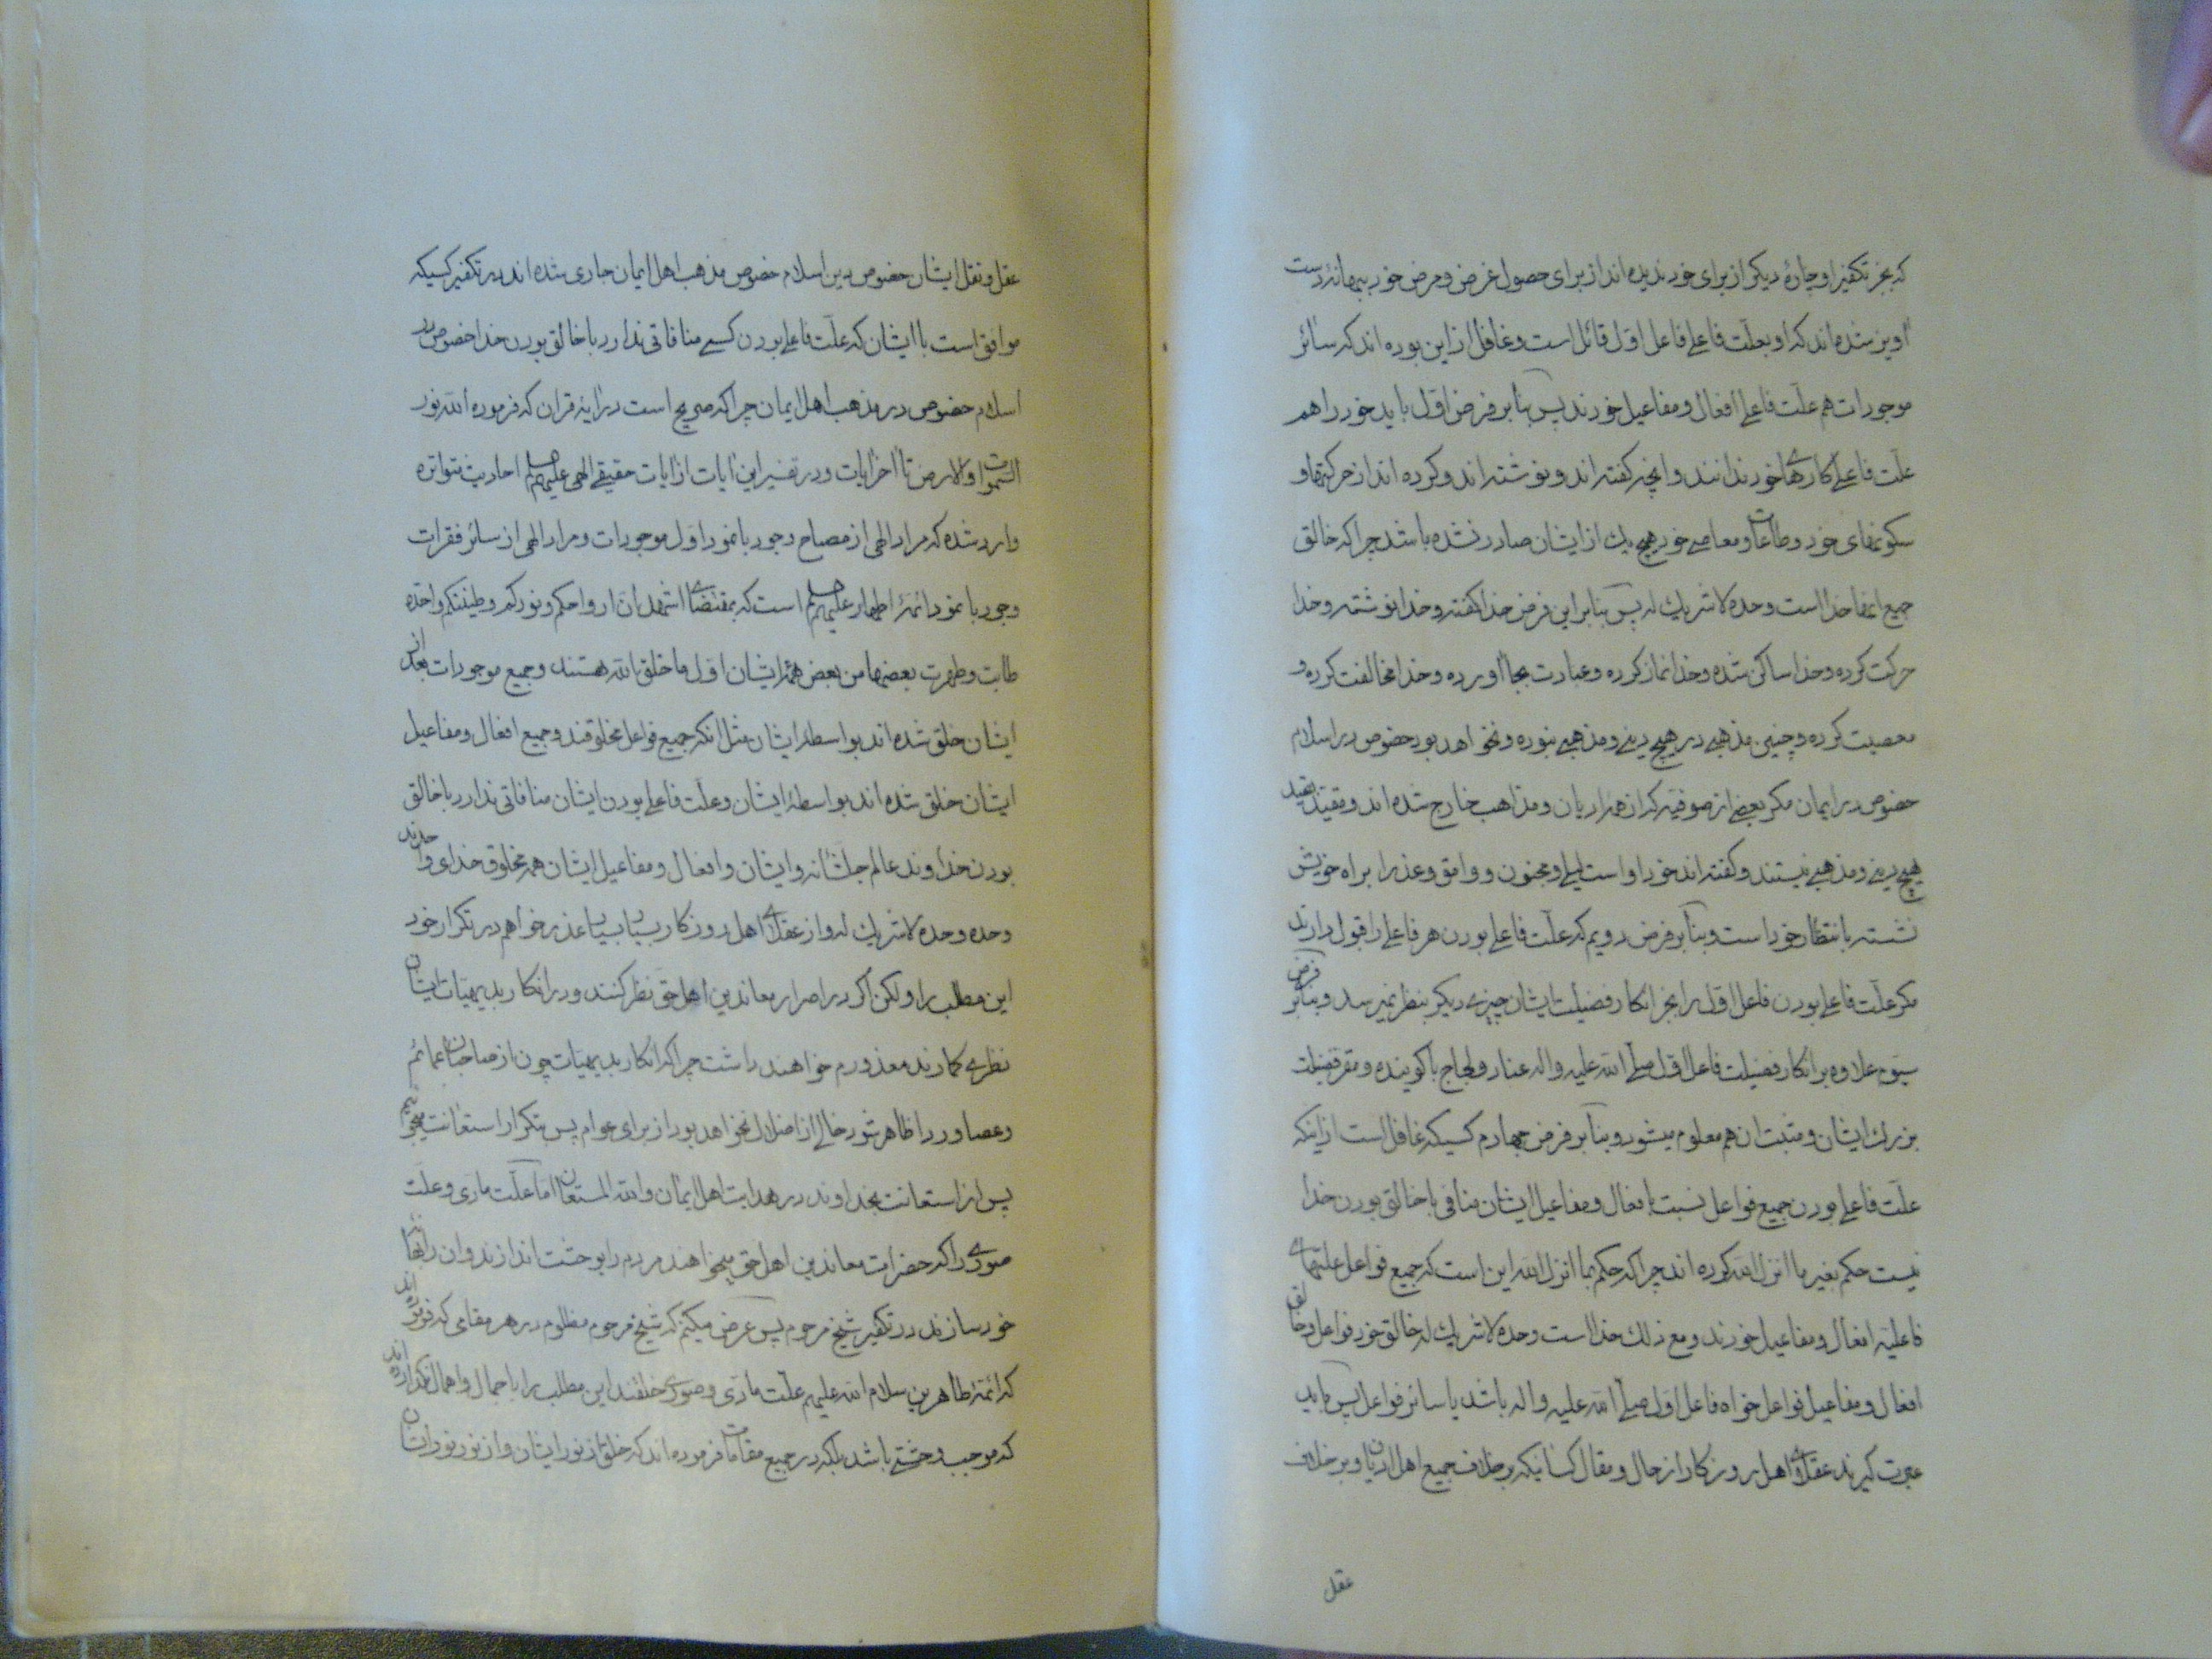 که بجز تکفیر او چارهٔ دیگر از برای خود ندیده اند از برای حصول غرض و مرض خود ببهانهٔ دست
آویز شده اند که او بعلّت فاعلی فاعل اوّل قائل است و غافل از این بوده اند که سائر
موجودات هم علّت فاعلی افعال و مفاعیل خودند پس بنا بر فرض اوّل باید خود را هم
علّت فاعلی کارهای خود ندانند و آنچه گفته اند و نوشته اند و کرده اند از حرکتها و
سکونهای خود و طاعات و معاصی خود هیچ یک از ایشان صادر نشده باشد چرا که خالق
جمیع اینها خدا است وحده لا شریک له پس بنا بر این فرض خدا گفته و خدا نوشته و خدا
حرکت کرده و خدا ساکن شده و خدا نماز کرده و عبادت بجا آورده و خدا مخالفت کرده و
معصیت کرده و چنین مذهبی در هیچ دینی و مذهبی نبوده و نخواهد بود خصوص در اسلام
خصوص در ایمان مگر بعضی از صوفیّه که از همهٔ ادیان و مذاهب خارج شده اند و مقیّد بقید
هیچ دینی و مذهبی نیستند و گفته اند خود اواست لیلی و مجنون و وامق و عذرا براه خویش
نشسته بانتظار خود است و بنا بر فرض دویم که علّت فاعلی بودن هر فاعلی را قبول دارند
مگر علّت فاعلی بودن فاعل اوّل را بجز انکار فضیلت ایشان چیزی دیگر بنظر نمیرسد و بنا بر فرض
سیّوم علاوه بر انکار فضیلت فاعل اوّل صلّی الله علیه و اله عناد و لجاج با گوینده و مقرّ فضیلت
بزرگ ایشان و مثبت ان هم معلوم میشود و بنا بر فرض چهارم کسیکه غافل است از اینکه
علّت فاعلی بودن جمیع فواعل نسبت بافعال و مفاعیل ایشان منافی با خالق بودن خدا
نیست حکم بغیر ما انزل الله کرده اند چرا که حکم بما انزل الله این است که جمیع فواعل علّتهای
فاعلیّه افعال و مفاعیل خودند و مع ذلک خدا است وحده لا شریک له خالق خود فواعل و خالق
افعال و مفاعیل فواعل خواه فاعل اوّل صلّی الله علیه و اله باشد یا سائر فواعل پس باید
عبرت گیرند عقلای اهل روزگار از حال و مقال کسانیکه بر خلاف جمیع اهل ادیان و بر خلاف
عقل
عقل و نقل ایشان خصوص دین اسلام خصوص مذهب اهل ایمان جاری شده اند در تکفیر کسیکه
موافق است با ایشان که علّت فاعلی بودن کسی منافاتی ندارد با خالق بودن خدا خصوص در
اسلام خصوص در مذهب اهل ایمان چرا که صریح است در ایهٔ قران که فرموده الله نور
السموات والارض تا اخر ایات و در تفسیر این ایات از ایات حقیقی الهی علیهم السلم احادیث متواتره
وارد شده که مراد الهی از مصباح وجود با نمود اوّل موجودات و مراد الهی از سائر فقرات
وجود با نمود ائمّهٔ اطهار علیهم السلم است که بمقتضای اشهد ان ارواحکم و نورکم و طینتکم واحدة
طابت و طهرت بعضها من بعض همهٔ ایشان اوّل ما خلق الله هستند و جمیع موجودات بعد از
ایشان خلق شده اند بواسطهٔ ایشان مثل انکه جمیع فواعل مخلوقند و جمیع افعال و مفاعیل
ایشان خلق شده اند بواسطهٔ ایشان و علّت فاعلی بودن ایشان منافاتی ندارد با خالق
بودن خداوند عالم جلّ شانه و ایشان و افعال و مفاعیل ایشان همه مخلوق خدای واحدند
وحده وحده لا شریک له و از عقلای اهل روزگار بسیار بسیار عذر خواهم در تکرار خود
این مطلب را ولکن اگر در اصرار معاندین اهل حق نظر کنند و در انکار بدیهیّات ایشان
نظری گمارند معذورم خواهند داشت چرا که انکار بدیهیّات چون از صاحبان عمائم
و عصا و ردا ظاهر شود خالی از اضلال نخواهد بود از برای عوام پس بتکرار استعانت میجویم
پس از استعانت بخداوند در هدایت اهل ایمان والله المستعان امّا علّت مادّی و علّت
صوری را که حضرات معاندین اهل حق میخواهند مردم را بوحشت اندازند و ان را بهانهٔ
خود سازند در تکفیر شیخ مرحوم پس عرض میکنم که شیخ مرحوم مظلوم در هر مقامی که فرموده اند
که ائمّهٔ طاهرین سلام الله علیهم علّت مادّی و صوری خلقند این مطلب را باجمال و اهمال نگذارده اند
که موجب وحشتی باشد بلکه در جمیع مقامات فرموده اند که خلق از نور ایشان و از نور نور ایشان